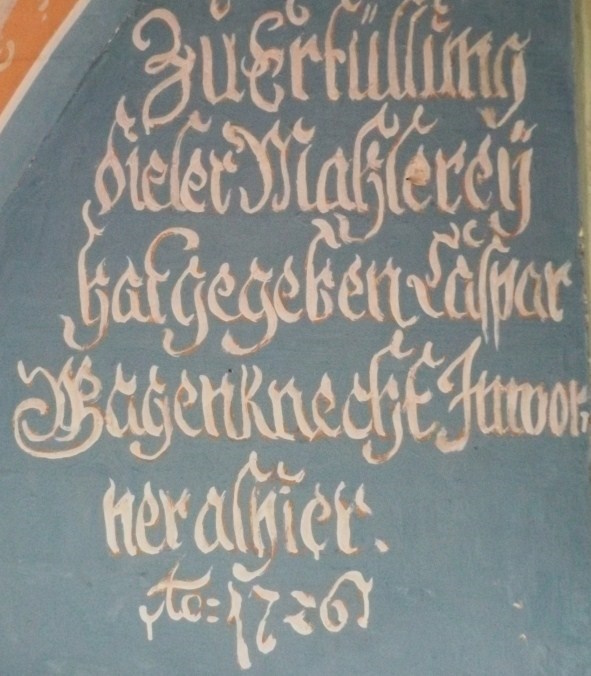 Zu Erfüllung
dieser Mahlereÿ
hat gegeben Caspar
Wagenknecht Inwoh-
ner alhier.